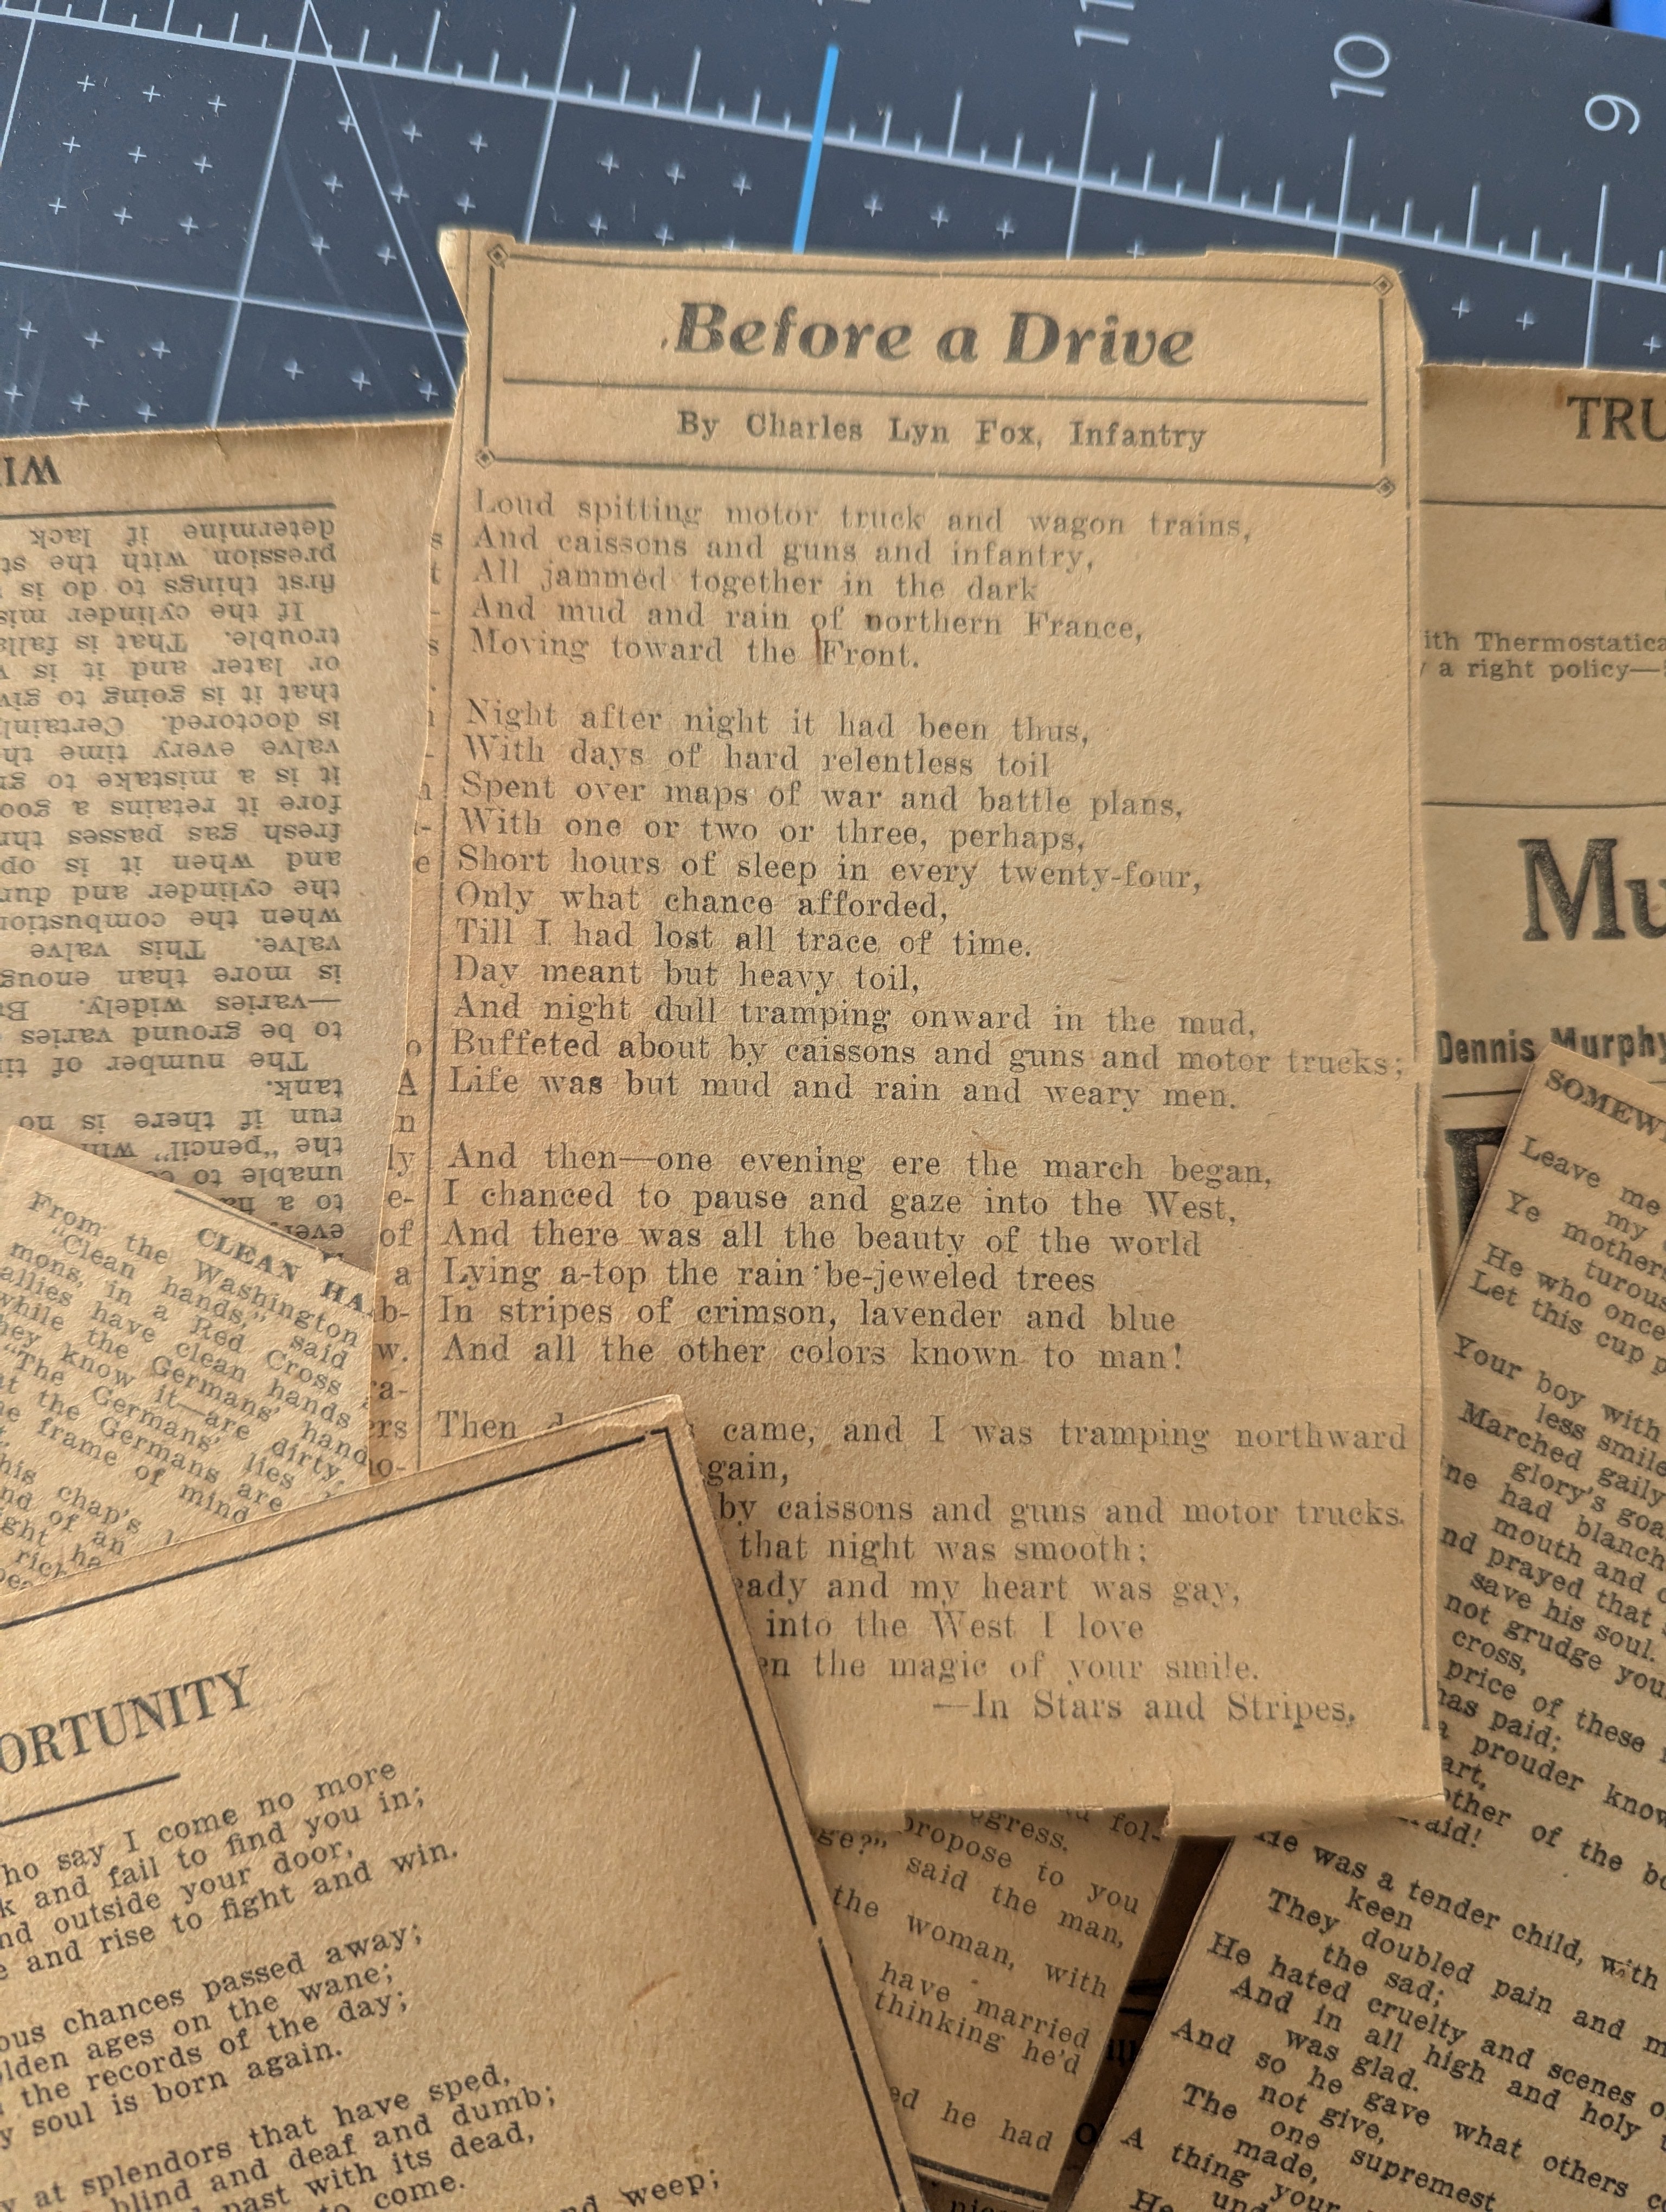 11
10
9
Before a Drive
By Charles Lyn Fox, Infantry
Loud spitting motor truck and wagon trains,
And caissons and guns and infantry,
All jammed together in the dark
And mud and rain of northern France,
Moving toward the Front.
Night after night it had been thus,
With days of hard relentless toil
Spent over maps of war and battle plans,
With one or two or three, perhaps,
Short hours of sleep in every twenty-four,
Only what chance afforded,
Till I had lost all trace of time.
Day meant but heavy toil,
And night dull tramping onward in the mud,
Buffeted about by caissons and guns and motor trucks;
Life was but mud and rain and weary men.
And then—one evening ere the march began,
I chanced to pause and gaze into the West,
And there was all the beauty of the world
Lying a-top the rain be-jeweled trees
In stripes of crimson, lavender and blue
And all the other colors known to man!
Then came, and I was tramping northward
gain,
by caissons and guns and motor trucks.
that night was smooth;
eady and my heart was gay,
into the West I love
en the magic of your smile.
—In Stars and Stripes.
s
t
-
s
n
-
e
o
A
n
ly
e-
of
a
b-
w.
ra-
ers
no-
WI
determine if lack
pression with the st
first things to do is
If the cylinder mis
trouble. That is falla
or later and it is
that it is going to giv
is doctored. Certainl
valve every time th
it is a mistake to gr
fore it retains a goo
fresh gas passes thr
and when it is op
the cylinder and dur
when the combustion
valve. This valve
is more than enoug
—varies widely. Bu
to be ground varies
The number of ti
tank.
run if there is no
the "pencil" wh
unable to
to a ha
ever
CLEAN HA
From the Washington
"Clean hands," said
mons, in a Red Cross
allies have clean hands
while the Germans' hand
hey know it—are dirty.
"The Germans' lies
at the Germans are
he frame of mind
his chap's
nd of an
ight he
rich
ORTUNITY
ho say I come no more
k and fail to find you in;
nd outside your door,
e and rise to fight and win.
ous chances passed away;
olden ages on the wane;
the records of the day;
y soul is born again.
y at splendors that have sped,
blind and deaf and dumb;
past with its dead,
to come.
nd weep;
TRU
ith Thermostatica
y a right policy—
Mu
Dennis Murphy
SOMEW
Leave me
my
Ye mothers
turous
He who once
Let this cup p
Your boy with
less smile
Marched gaily
glory's goa
ine had blanch
mouth and
nd prayed that
save his soul.
not grudge you
cross,
price of these
has paid;
a prouder know
art,
other of the bo
raid!
He was a tender child, with
keen
They doubled pain and m
the sad;
He hated cruelty and scenes o
And in all high and holy
was glad.
And so he gave what others c
not give,
The one supremest
made,
A thing your
und
He
ogress. fol-
propose to you
ge?" said the man,
the woman, with
have married
thinking he'd
ed he had